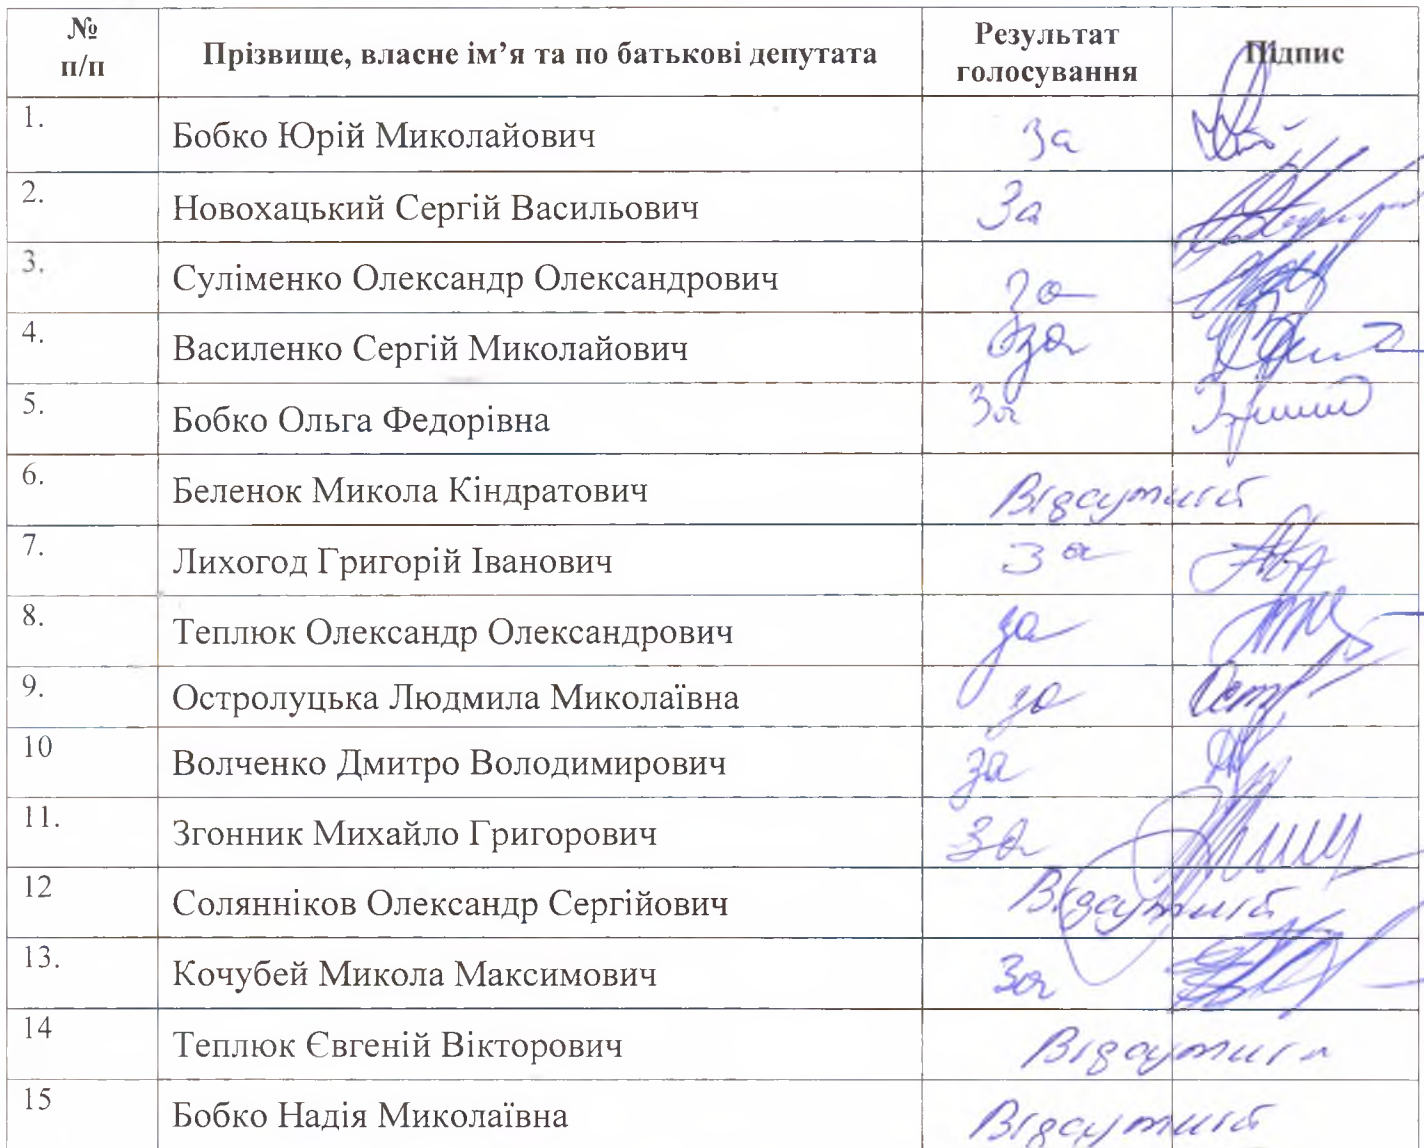 № п/п Прізвище, власне ім’я та по батькові депутата Результат голосування Підпис
1. Бобко Юрій Миколайович За
2. Новохацький Сергій Васильович За
3. Суліменко Олександр Олександрович за
4. Василенко Сергій Миколайович за
5. Бобко Ольга Федорівна За
6. Беленок Микола Кіндратович Відсутній
7. Лихогод Григорій Іванович за
8. Теплюк Олександр Олександрович за
9. Остролуцька Людмила Миколаївна за
10 Волченко Дмитро Володимирович за
11. Згонник Михайло Григорович За
12 Солянніков Олександр Сергійович Відсутній
13. Кочубей Микола Максимович За
14 Теплюк Євгеній Вікторович Відсутній
15 Бобко Надія Миколаївна Відсутній